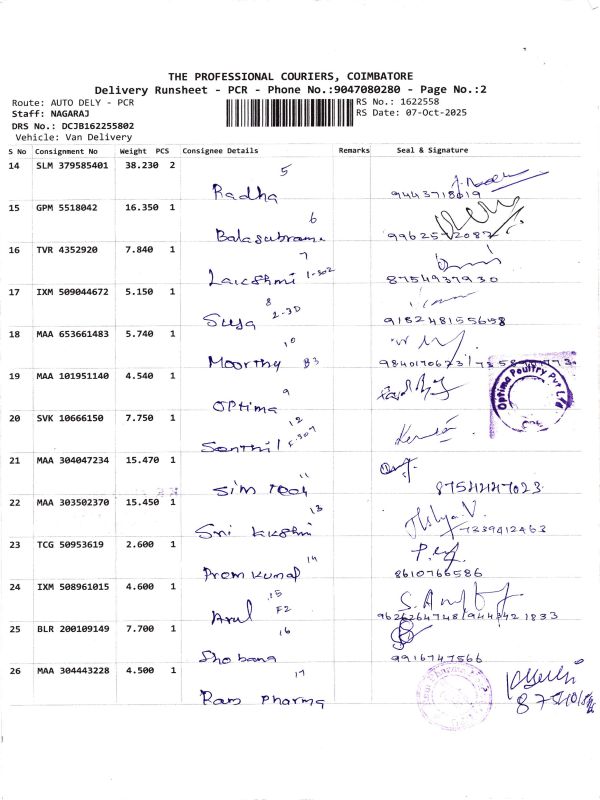 THE PROFESSIONAL COURIERS, COIMBATORE
Delivery Runsheet - PCR - Phone No.:9047080280 - Page No.:2
Route: AUTO DELY - PCR
RS No.: 1622558
Staff: NAGARAJ
RS Date: 07-Oct-2025
DRS No.: DCJB162255802
Vehicle: Van Delivery
S No Consignment No Weight PCS Consignee Details Remarks Seal & Signature
14 SLM 379585401 38.230 2 5
Radha 9443718019
15 GPM 5518042 16.350 1 6
Balasubrame
16 TVR 4352920 7.840 1 7
Laicshmi 1-302 8754937930
17 IXM 509044672 5.150 1 8
Susa 2-3D 918248155658
18 MAA 653661483 5.740 1 10
Moorthy B3
19 MAA 101951140 4.540 1 9
Optima Optima Poultry Pvt Ltd
20 SVK 10666150 7.750 1 12
Senthil
21 MAA 304047234 15.470 1 11
Sim Tech
22 MAA 303502370 15.450 1 13
Sri 7339412463
23 TCG 50953619 2.600 1 14
Premkumar 8610766586
24 IXM 508961015 4.600 1 15
Arul F2
25 BLR 200109149 7.700 1 16
Shobana 9916747566
26 MAA 304443228 4.500 1 17
Ram Pharma